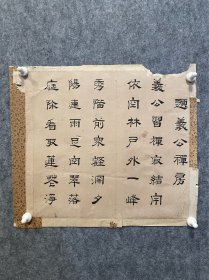 題義公禪房
義公習禪寂結宇
依空林戶外一峰
秀階前衆壑深夕
陽連雨足空翠落
庭陰看取蓮花淨